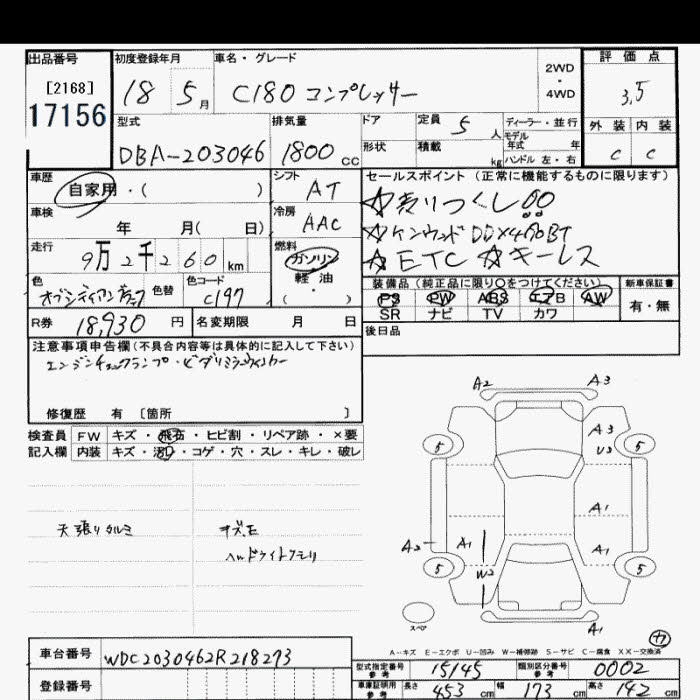 出品番号 初度登録年月 車名・グレード 2WD・4WD 評価点
[2168]
17156
18 5月 C180 コンプレッサー 3,5
型式 排気量 ドア 定員 5人 ディーラー・並行 外装 内装
モデル年式 年
DBA-203046 1800cc 形状 積載 kg ハンドル 左・右 C C
車歴 シフト セールスポイント(正常に機能するものに限ります)
自家用・( ) AT ☆売りつくし!!
車検 冷房 ☆ケンウッドDDX4170BT
年 月( 日) AAC ☆ETC ☆キーレス
走行 燃料
9万2千260km ガソリン
軽油
・( )
色 色替 色コード 装備品(純正品に限り○をつけてください) 新車保証書
オブシディアンブラック C197 PS PW ABS エアB AW 有・無
SR ナビ TV カワ
R券 18,930円 名変期限 月 日 後日品
注意事項申告欄(不具合内容等は具体的に記入して下さい)
エンジンチェックランプ・ヒダリミラーウィンカー
修復歴 有 [箇所 ]
検査員 FW キズ・飛石・ヒビ割・リペア跡・×要
記入欄 内装 キズ・汚・コゲ・穴・スレ・キレ・破レ
A2 A3
5 A3 5
U3
天張りタルミ キズモ
ヘッドライトクモリ
A1
A2 A1 A1
5 W2 5
スペア
A-キズ E-エクボ U-凹み W-補修跡 S-サビ C-腐食 XX-交換済
車台番号 WDC2030462R218273
型式指定番号 参考 15145 類別区分番号 参考 0002
登録番号
車庫証明用 参考 長さ 453cm 幅 173cm 高さ 142cm